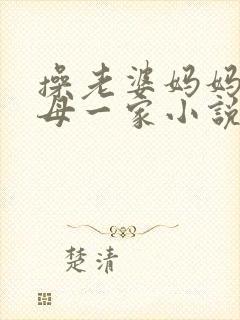 操老婆妈妈
母一家小说
楚清